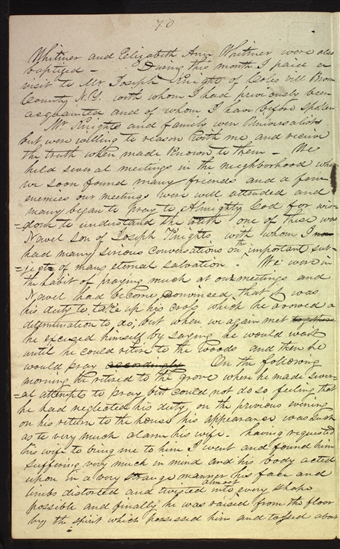 70
Whitmer and Elizabeth Ann Whitmer were also
baptized — During this month I paid a
visit to Mr Joseph Knight of Colesvill Broom
County N.Y. with whom I had previously been
acquainted and of whom I have before spoken
Mr Knights and family were Universalists
but were willing to reason with me and receive
the truth when made known to them — We
held several meetings in the neighborhood where
we soon found many friends and a few
enemies our meetings were well attended and
many began to pray to Almighty God for wis
dom to understand the truth one of these was
Newel Son of Joseph Knights with whom I
had many serious conversations on the important sub-
-jects of mans eternal salvation We were in
the habit of praying much at our meetings and
Newel had become convinced that it was
his duty to take up his cross which he avowed a
determination to do; but when we again met
he excused himself by saying he would wait
until he could retire to the woods and then he
would pray On the following
morning he retired to the grove when he made sever
-al attempts to pray but could not do so feeling that
he had neglected his duty on the previous evening
on his return to the house his appearance was such
as to very much alarm his wife, having requested
his wife to bring me to him I went and found him
suffering very much in mind and his body acted
upon in a very strange manner his face and
limbs distorted and twisted almost into every shape
possible and finally he was raised from the floor
by the spirit which possessed him and tossed about